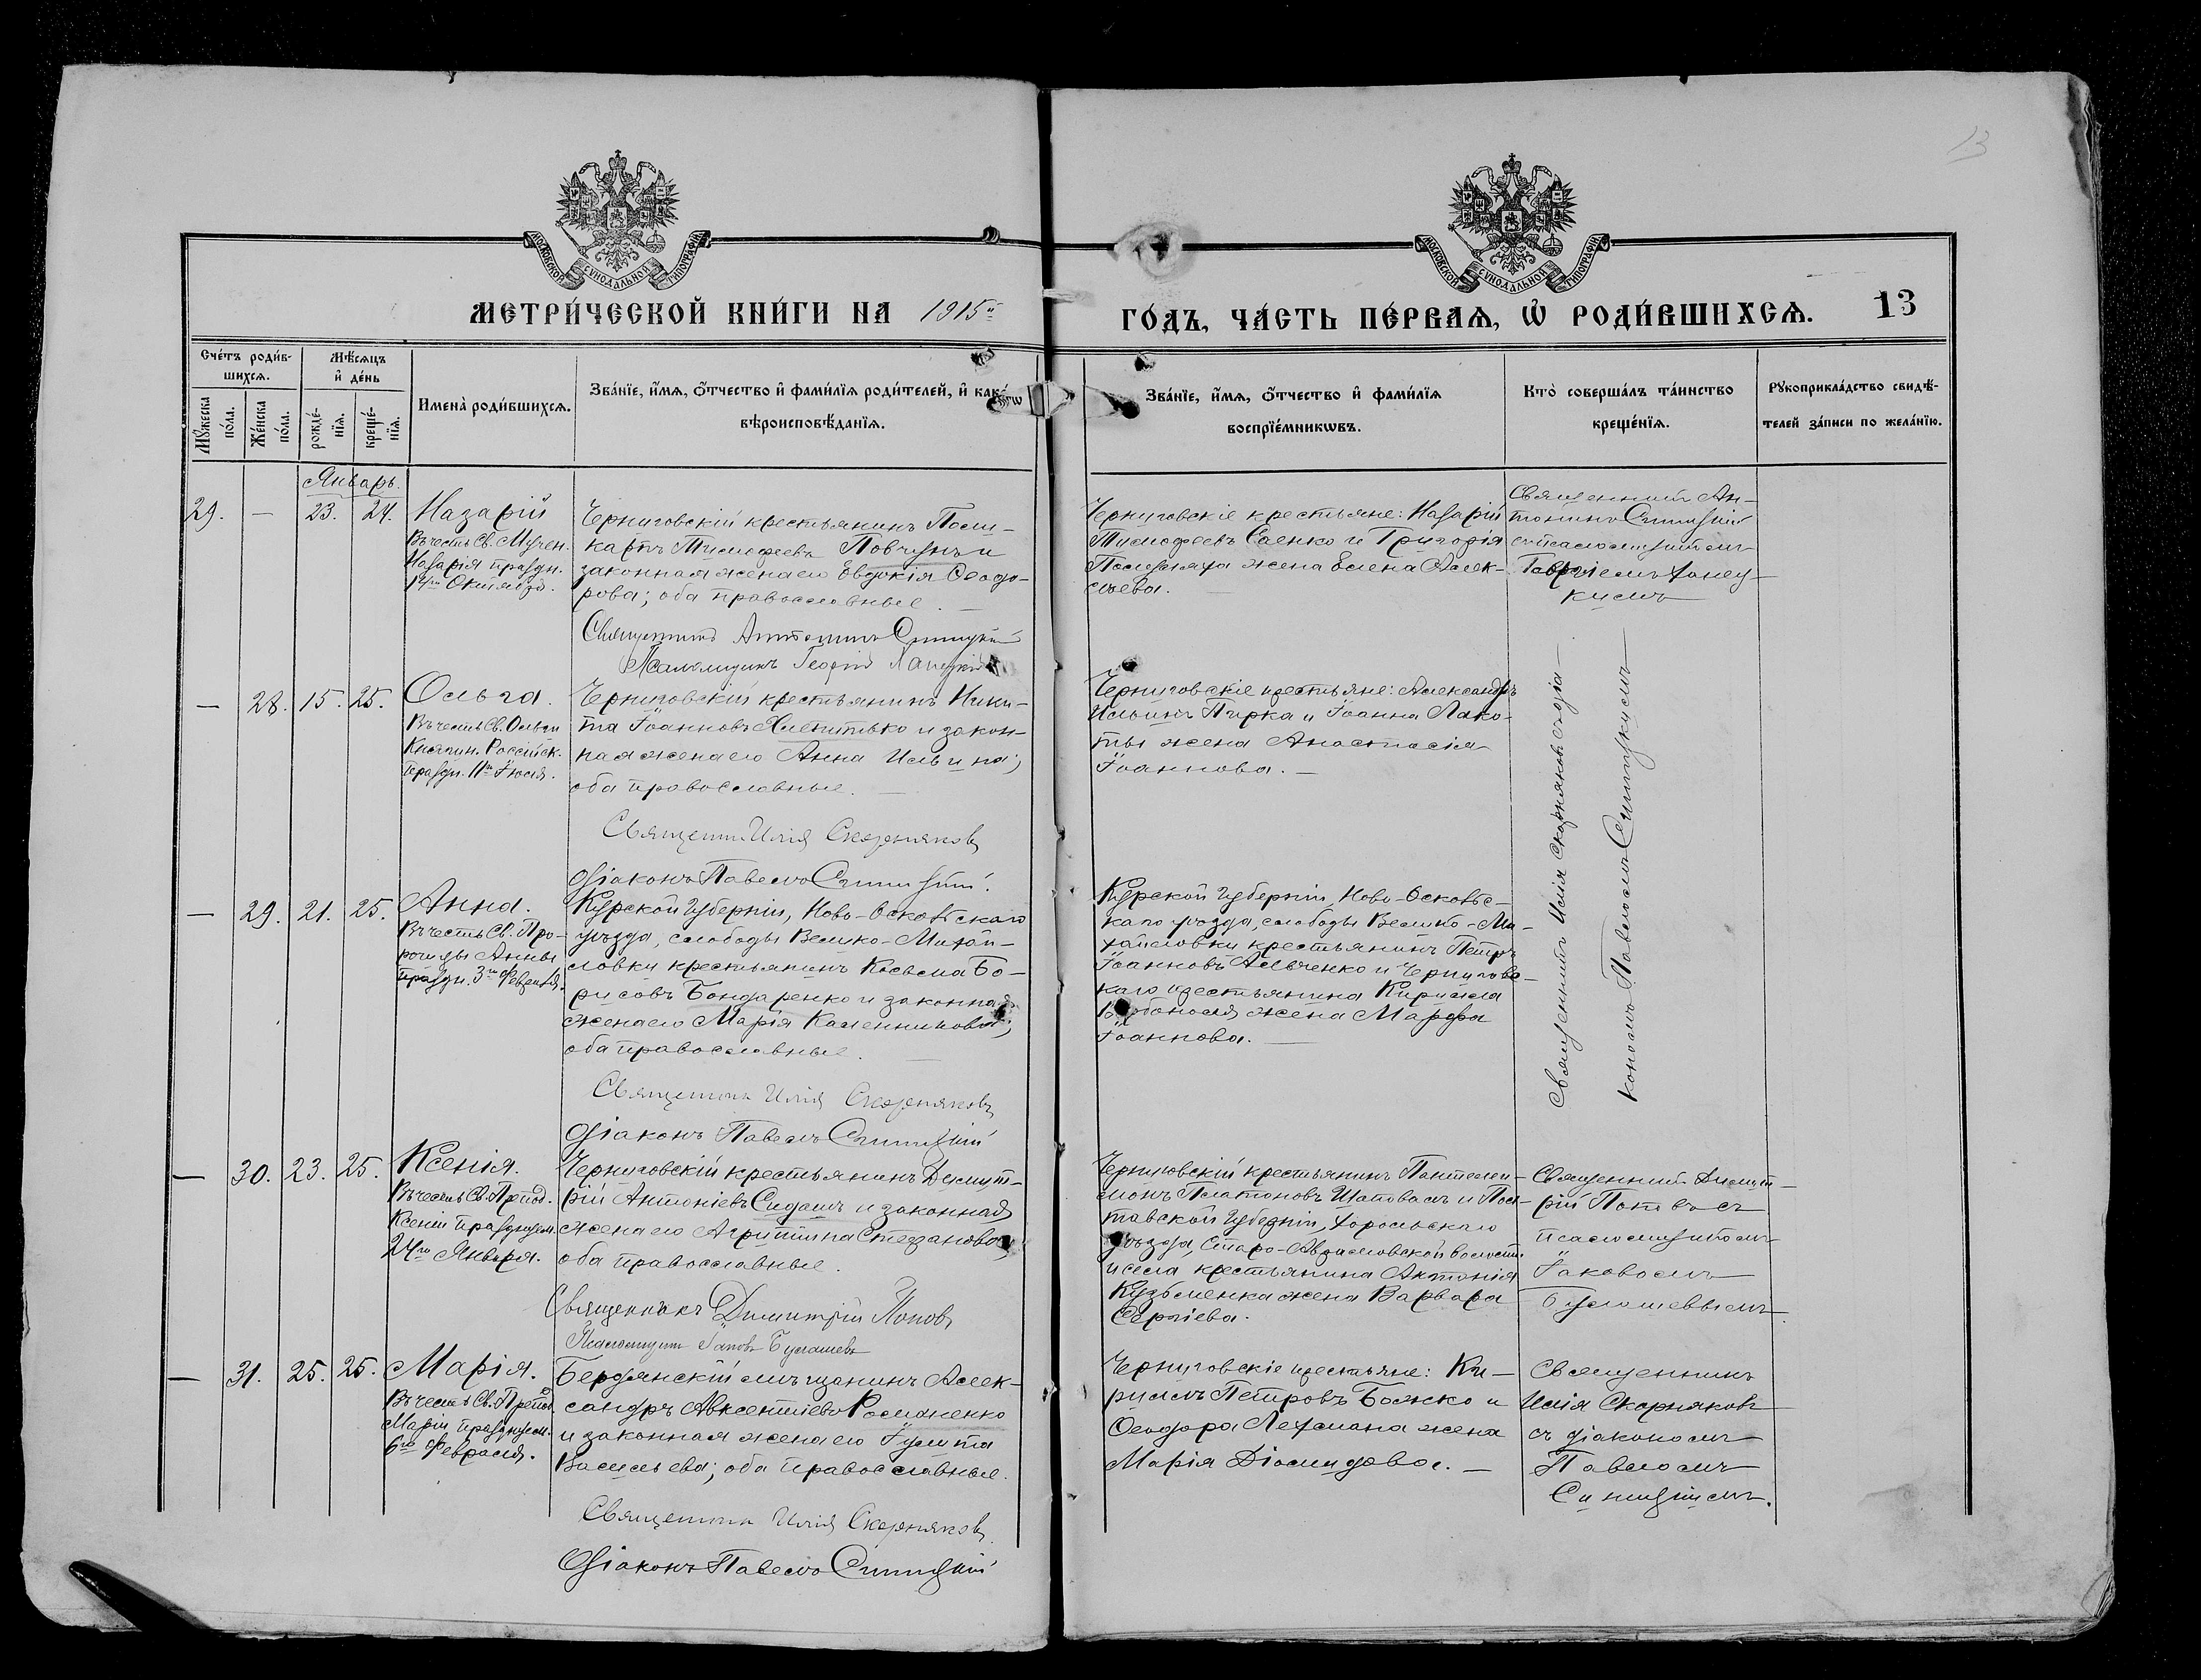 13
МОСКОВСКОЙ СѴНОДАЛЬНОЙ ТИПОГРАФІИ
МОСКОВСКОЙ СѴНОДАЛЬНОЙ ТИПОГРАФІИ
МЕТРИ́ЧЕСКОЙ КНИ́ГИ НА 1915й
ГО́ДЪ, ЧА́СТЬ ПЕ́РВАѦ, Ѡ҆ РОДИ́ВШИХСѦ. 13
Сче́тъ роди́в-
шихсѧ.
Мѣ́сѧцъ
и҆ де́нь
Мꙋ́жеска
по́ла.
Же́нска
по́ла.
рожде́-
нїѧ.
креще́-
нїѧ.
Имена̀ роди́вшихсѧ.
Зва́нїе, и҆́мѧ, ѻ҆́тчество и҆ фами́лїѧ роди́телей, и҆ како́гѡ
вѣроисповѣ́данїѧ.
Зва́нїе, и҆́мѧ, ѻ҆́тчество и҆ фами́лїѧ
воспрїе́мникѡвъ.
Кто̀ соверша́лъ та́инство
креще́нїѧ.
Рꙋкоприкла́дство свидѣ́-
телей за́писи по жела́нїю.
Январь.
29. — 23. 24. Назарій
Въ честь Св. Мучен.
Назарія праздн.
14го Октября.
Черниговскій крестьянинъ Поли-
карпъ Тимофеевъ Повчунъ и
законная жена его Евдокія Ѳеодо-
рова; оба православные. —
Священникъ Антонинъ Синицкій
Псаломщикъ Георгій
Черниговскіе крестьяне: Назарій
Тимофеевъ Саенко и Григорія
жена Елена Алек-
сѣева.
Священникъ Ан-
тонинъ Синицкій
съ псаломщикомъ
— 28. 15. 25. Ольга.
Въ честь Св. Ольги
Княгин. Россійск.
праздн. 11го Іюля.
Черниговскій крестьянинъ Ники-
та Іоанновъ и закон-
ная жена его Анна Ильина;
оба православные. —
Священникъ Илія Скорняковъ
Діаконъ Павелъ Синицкій.
Черниговскіе крестьяне: Александръ
Ильинъ Пирка и Іоанна Лако-
ты жена Анастасія
Іоаннова. —
Священникъ Илія Скорняковъ съ діа—
кономъ Павломъ Синицкимъ
— 29. 21. 25. Анна.
Въ честь Св. Про-
рочицы Анны
праздн. 3го Февраля.
Курской губерніи, Ново-Оскольскаго
уѣзда, слободы Велико-Михай-
ловки крестьянинъ Косьма Бо-
рисовъ Бондаренко и законная
жена его Марія Калинникова;
оба православные. —
Священникъ Илія Скорняковъ
Діаконъ Павелъ Синицкій
Курской губерніи, Ново-Осколь-
скаго уѣзда, слободы Велико-Ми-
хайловки крестьянинъ Петръ
Іоанновъ и Черниговс-
каго крестьянина Кирилла
жена Марфа
Іоаннова. —
— 30. 23. 25. Ксенія.
Въ честь Св. Препод.
Ксеніи празднуем.
24го Января.
Черниговскій крестьянинъ Димит-
рій Антоніевъ Сидашъ и законная
жена его Агриппина Стефанова;
оба православные.
Священникъ Димитрій Поповъ
Псаломщикъ Іаковъ Булашевъ
Черниговскій крестьянинъ Пантелеи-
монъ Платоновъ Шаповалъ и Пол-
тавской губерніи, Хорольскаго
уѣзда, Старо-Аврамовской волости
и села крестьянина Антонія
Кузьменка жена Варвара
Сергіева.
Священникъ Димит-
рій Поповъ съ
псаломщикомъ
Іаковомъ
Булашевымъ.
— 31. 25. 25. Марія.
Въ честь Св. Препод.
Маріи празднуем.
6го Февраля.
Бердянскій мѣщанинъ Алек-
сандръ Авксентіевъ Романенко
и законная жена его Іулитта
Васильева; оба православные.
Священникъ Илія Скорняковъ
Діаконъ Павелъ Синицкій
Черниговскіе крестьяне: Ки-
риллъ Петровъ Божко и
Ѳеодора Лехмана жена
Марія Діомидова. —
Священникъ
Илія Скорняковъ
съ діакономъ
Павломъ
Синицкимъ.